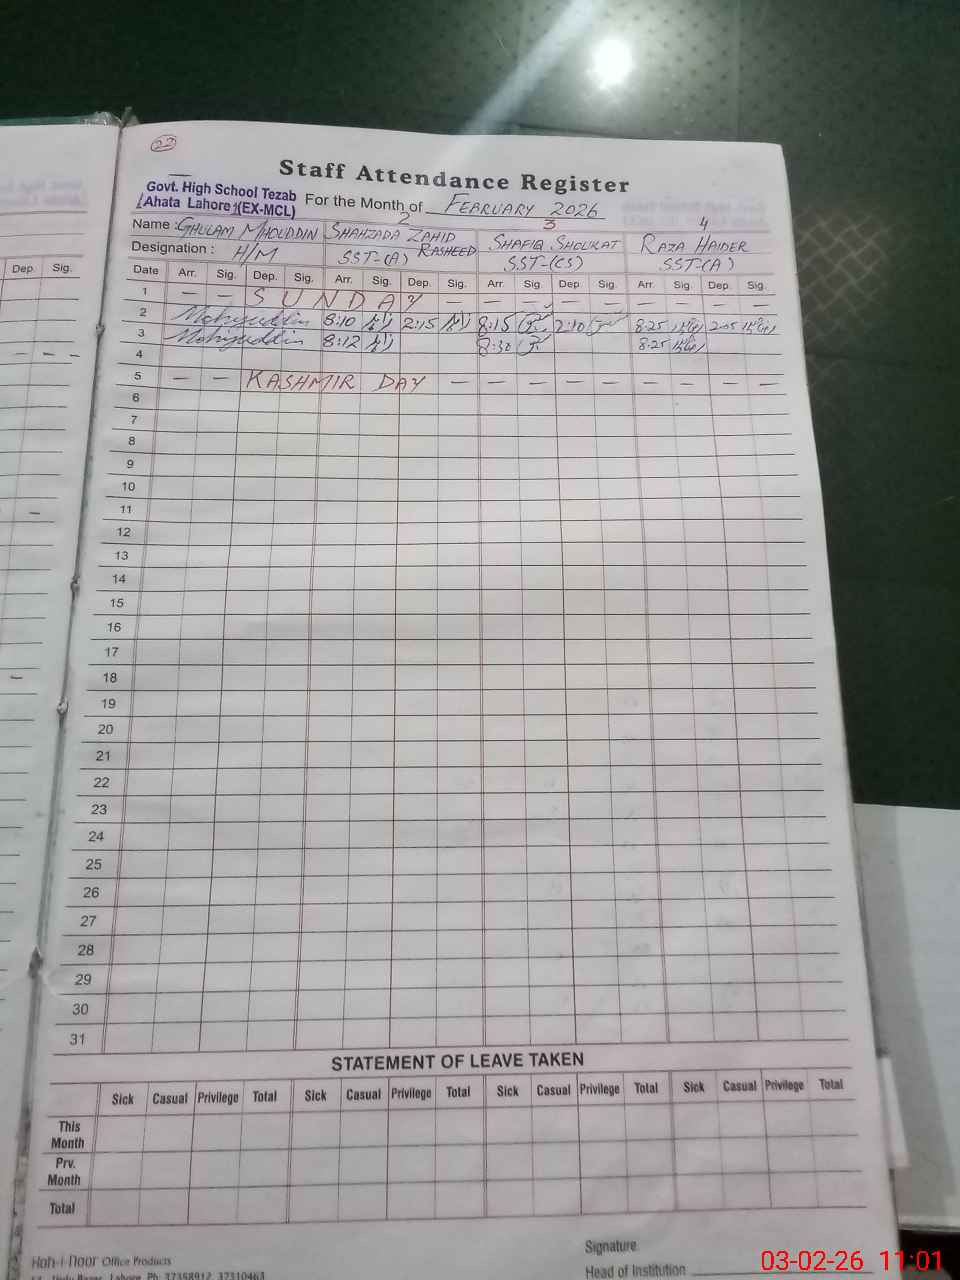 22
Staff Attendance Register
Govt. High School Tezab
Ahata Lahore (EX-MCL)
For the Month of FEBRUARY 2026
2 3 4
Name : GHULAM MHOUDDIN SHAHZADA ZAHID RASHEED SHAFIQ SHOUKAT RAZA HAIDER
Designation : H/M SST-(A) SST-(CS) SST-(A)
Dep. Sig.
Date Arr. Sig. Dep. Sig. Arr. Sig. Dep. Sig. Arr. Sig. Dep. Sig. Arr. Sig. Dep. Sig.
1 — — SUNDAY — — — — — — — — —
2 Mohyuddin 8:10 2:15 8:15 2:10 8:25 2:05
3 Mohyuddin 8:12 8:30 8:25
4
5 — — KASHMIR DAY — — — — — — — — —
6
7
8
9
10
11
12
13
14
15
16
17
18
19
20
21
22
23
24
25
26
27
28
29
30
31
STATEMENT OF LEAVE TAKEN
Sick Casual Privilege Total Sick Casual Privilege Total Sick Casual Privilege Total Sick Casual Privilege Total
This Month
Prv. Month
Total
Koh-i-Noor Office Products
Lahore. Ph: 37358912, 37310463
Signature
Head of Institution
03-02-26 11:01